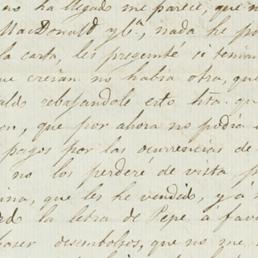 no ha llegado me parece, que n
MacDonald y Ca, nada he po
la carta, les pregunté si tenian
ue creian no habia otra, que
ald rebajandole esto hta. qu
on, que por ahora no podia
pagos por las ocurrencias de
no los perderé de vista, p
ina, que les he vendido, y á
rd la letra de Pepe á favo
haser desembolsos, que no me